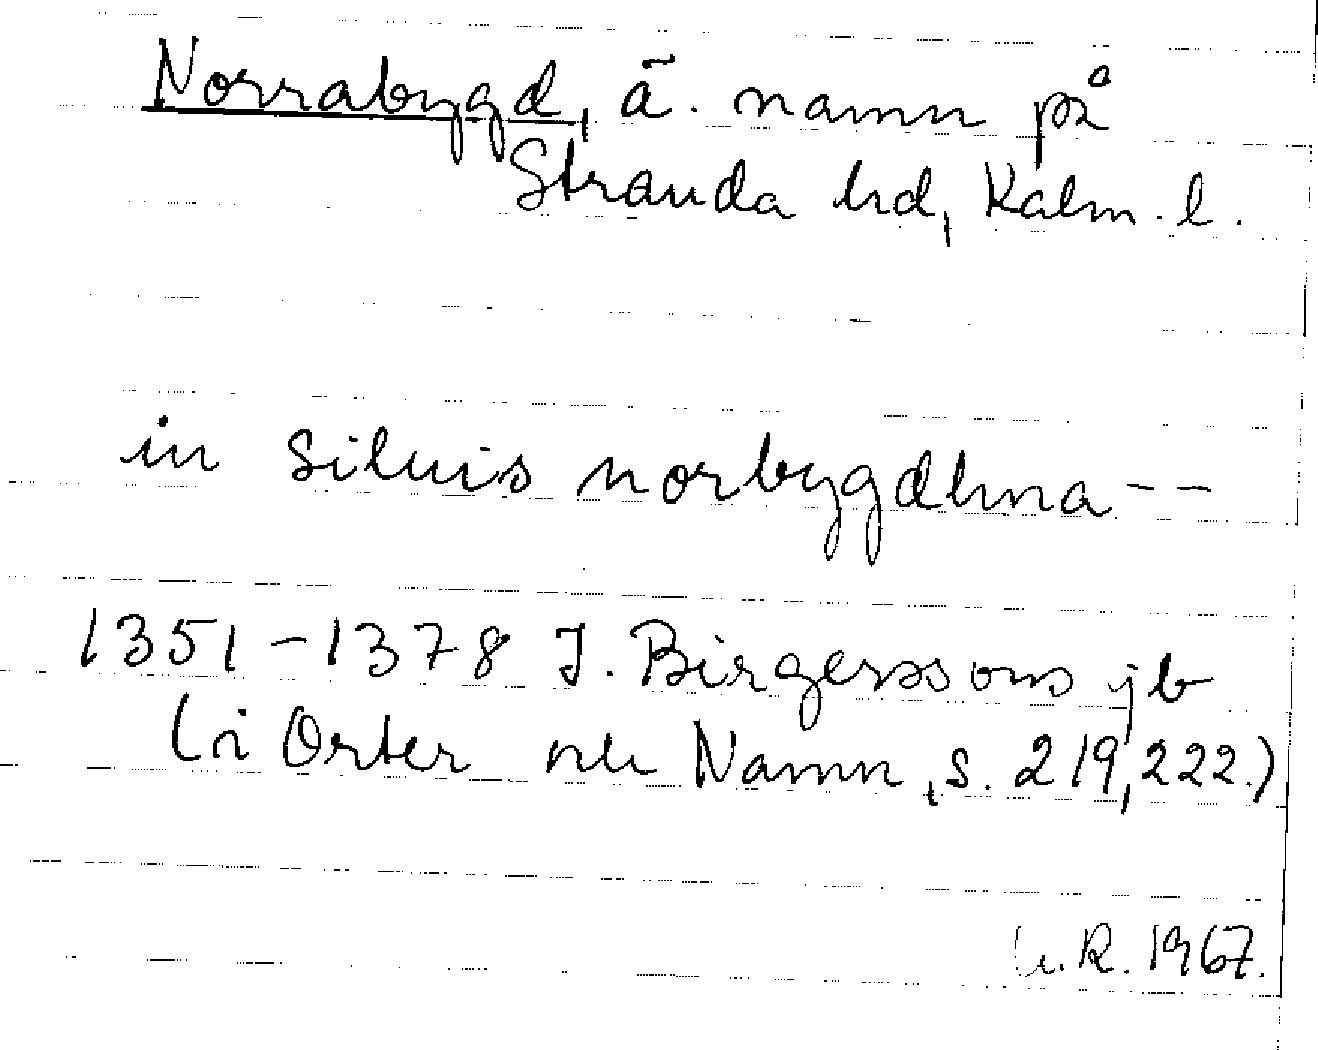 Norrabygd, ä. namn på
Stranda hd, Kalm. l.
in siluis norbygdhna --
1351-1378 J. Birgerssons jb
(i Orter och Namn, s. 219, 222.)
R. 1967.